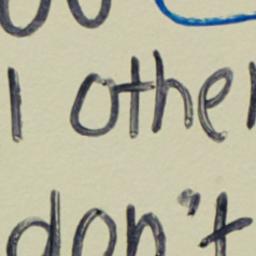 I other
don't